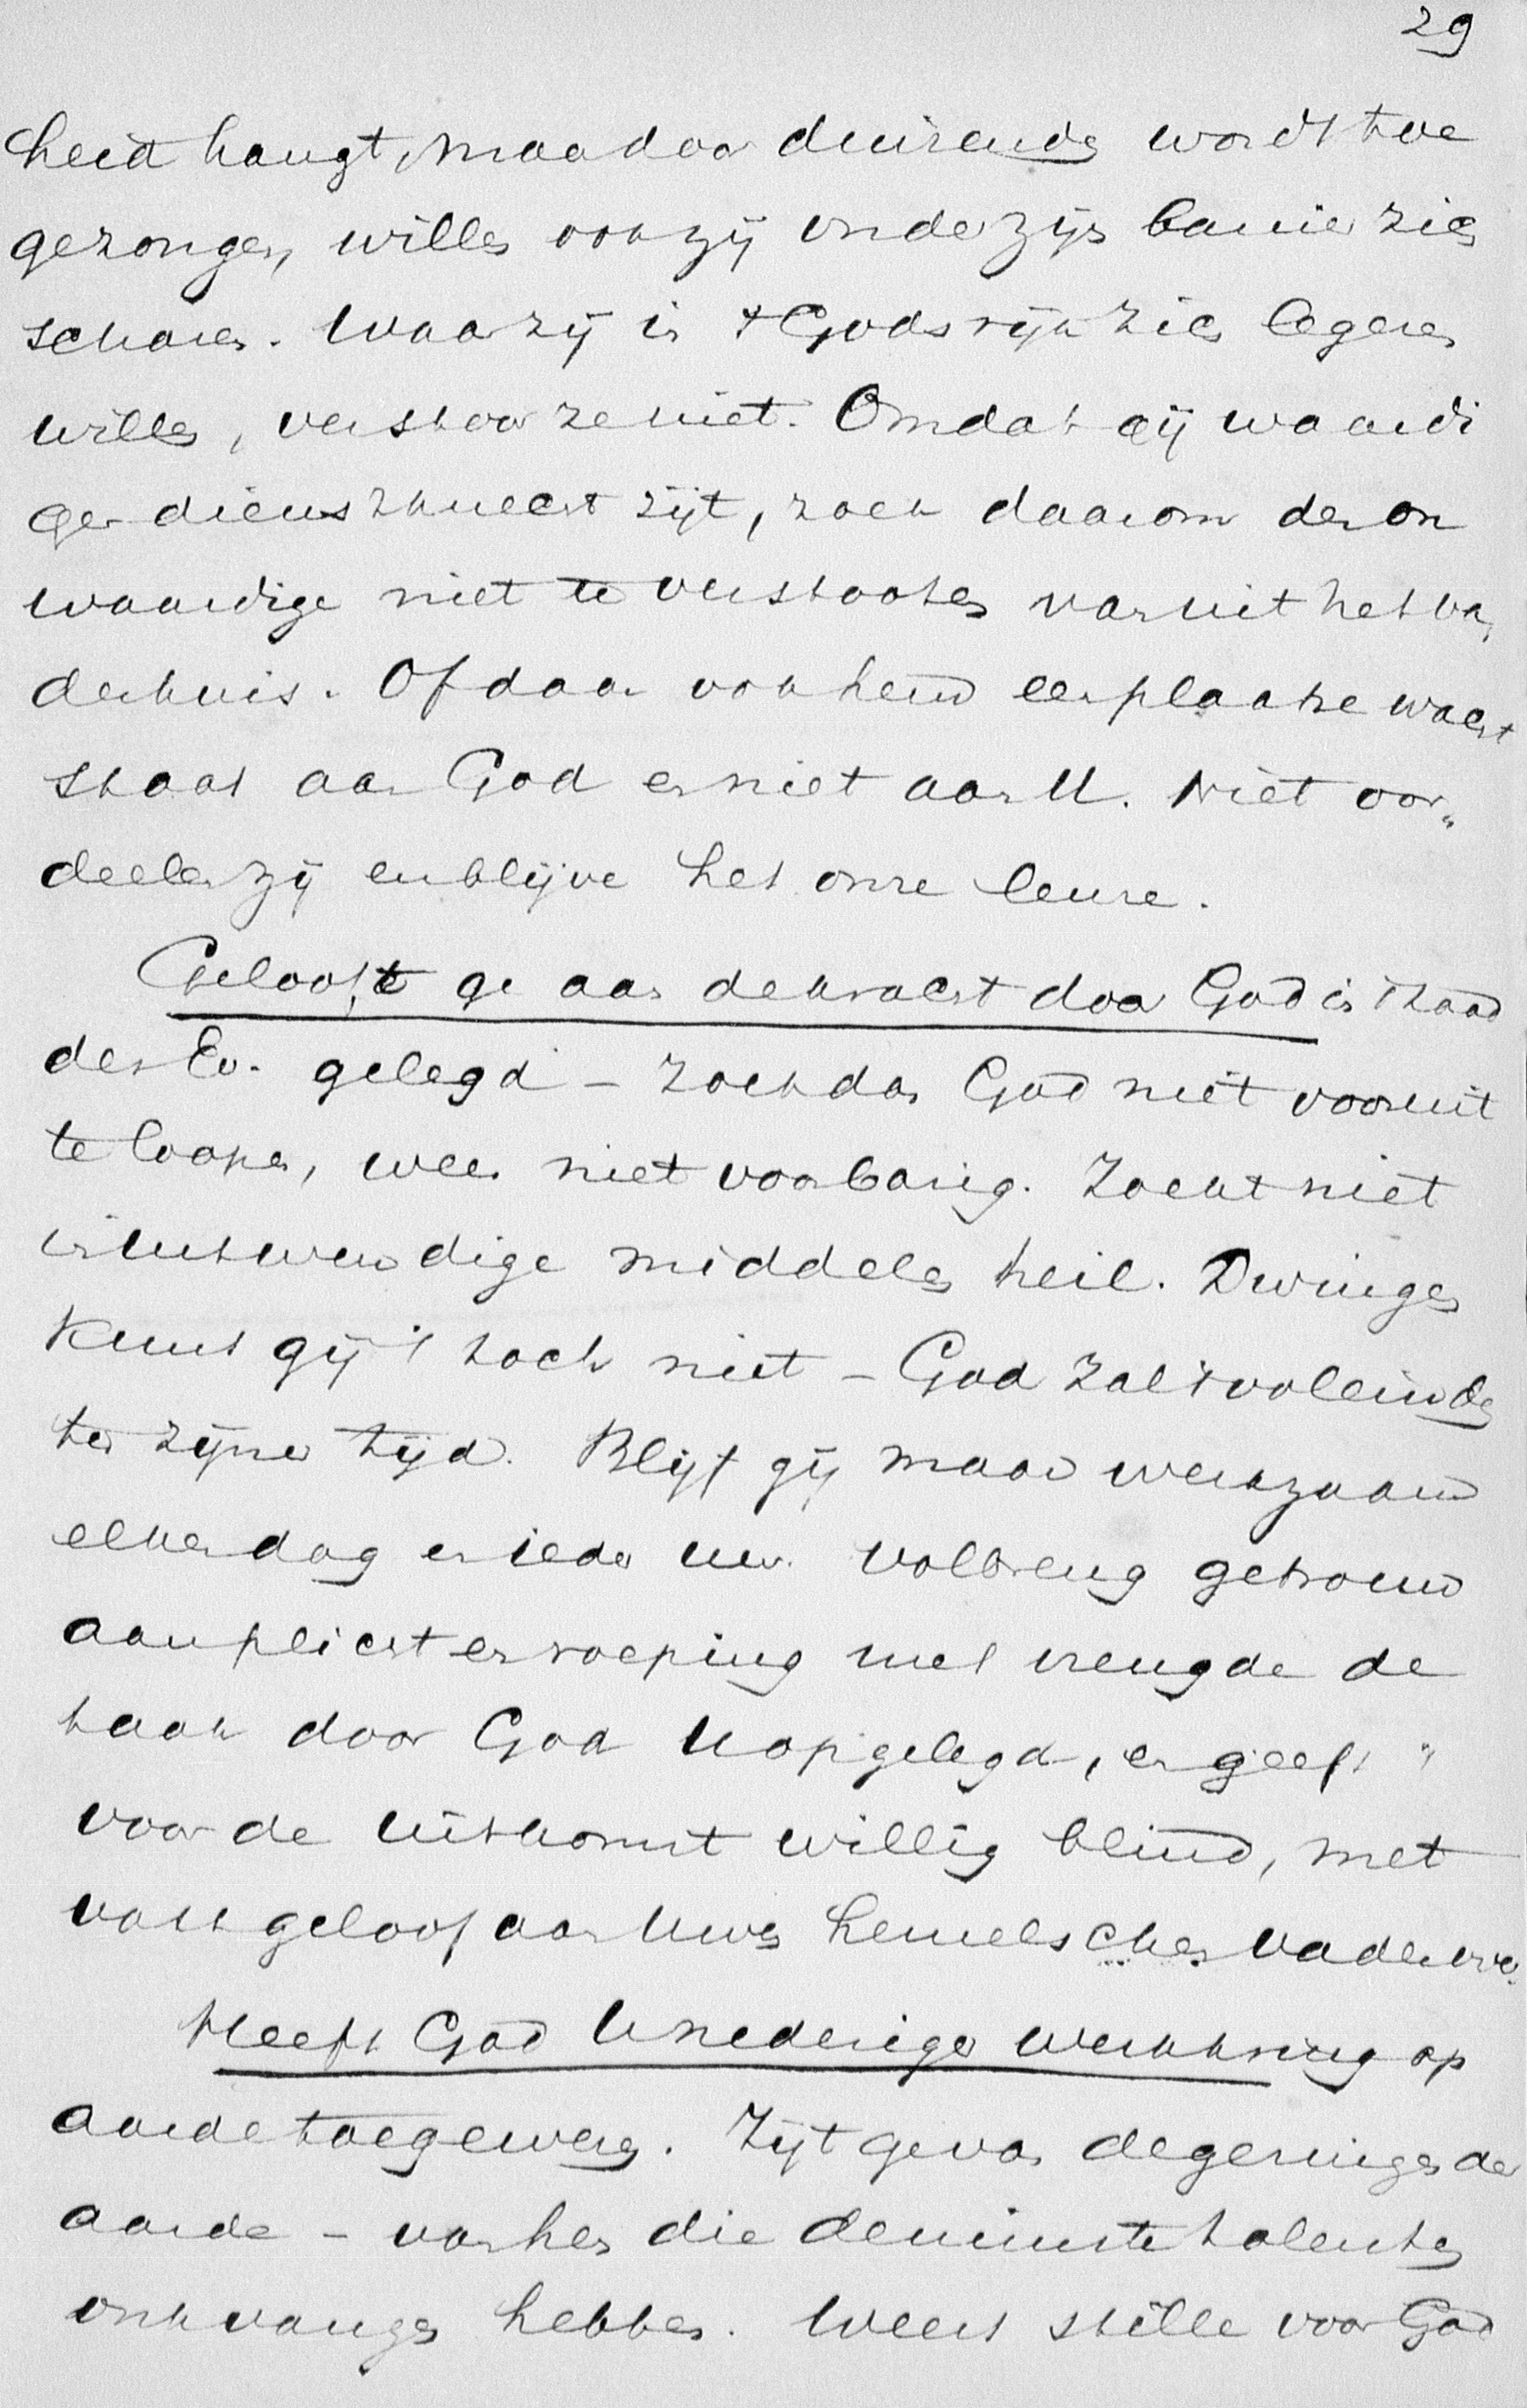 29
heid hangt, maar door duizenden wordt toe
gezongen, willen ook zij onder zijn banier zich
scharen. Waar zij in 't Godsrijk zich legeren
willen, verstoor ze niet. Omdat gij waardi
ger dienstknecht zijt, zoek daarom den on
waardige niet te verstooten van uit het va„
derhuis. Of daar ook hem een plaatse wacht
staat aan God en niet aan U. Niet oor„
deelen zij en blijve het onze leuze.
Gelooft ge aan de kracht door God in 't zaad
des Ev. gelegd – zoek dan God niet vooruit
te loopen, wees niet voorbarig. Zoekt niet
in uitwendige middelen heil. Dwingen
kunt gij 't toch niet – God zal 't voleinden
ter zijner tijd. Blijf gij maar werkzaam
elken dag en ieder uur. Volbreng getrouw
aan plicht en roeping met vreugde de
taak door God U opgelegd, en geeft U
voor de uitkomst willig blind, met
vast geloof aan Uwen hemelschen Vader over.
Heeft God U nederiger werkkring op
aarde toegewezen. Zijt ge van de geringen der
aarde – van hen die de minste talenten
ontvangen hebben. Weest stille voor God